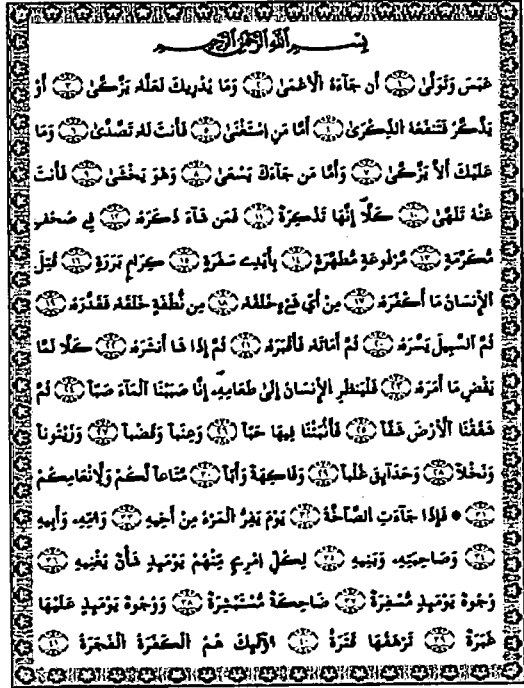 بِسْمِ اللَّهِ الرَّحْمَٰنِ الرَّحِيمِ
عَبَسَ وَتَوَلَّىٰ ١ أَن جَآءَهُ الْأَعْمَىٰ ٢ وَمَا يُدْرِيكَ لَعَلَّهُ يَزَّكَّىٰ ٣ أَوْ
يَذَّكَّرُ فَتَنفَعُهُ الذِّكْرَىٰ ٤ أَمَّا مَنِ اسْتَغْنَىٰ ٥ فَأَنتَ لَهُ تَصَّدَّىٰ ٦ وَمَا
عَلَيْكَ أَلَّا يَزَّكَّىٰ ٧ وَأَمَّا مَن جَآءَكَ يَسْعَىٰ ٨ وَهُوَ يَخْشَىٰ ٩ فَأَنتَ
عَنْهُ تَلَهَّىٰ ١٠ كَلَّا إِنَّهَا تَذْكِرَةٌ ١١ فَمَن شَآءَ ذَكَرَهُ ١٢ فِي صُحُفٍ
مُّكَرَّمَةٍ ١٣ مَّرْفُوعَةٍ مُّطَهَّرَةٍ ١٤ بِأَيْدِي سَفَرَةٍ ١٥ كِرَامٍ بَرَرَةٍ ١٦ قُتِلَ
الْإِنسَانُ مَا أَكْفَرَهُ ١٧ مِنْ أَيِّ شَيْءٍ خَلَقَهُ ١٨ مِن نُّطْفَةٍ خَلَقَهُ فَقَدَّرَهُ ١٩
ثُمَّ السَّبِيلَ يَسَّرَهُ ٢٠ ثُمَّ أَمَاتَهُ فَأَقْبَرَهُ ٢١ ثُمَّ إِذَا شَآءَ أَنشَرَهُ ٢٢ كَلَّا لَمَّا
يَقْضِ مَا أَمَرَهُ ٢٣ فَلْيَنظُرِ الْإِنسَانُ إِلَىٰ طَعَامِهِ إِنَّا صَبَبْنَا الْمَآءَ صَبًّا ٢٤ ثُمَّ
شَقَقْنَا الْأَرْضَ شَقًّا ٢٥ فَأَنبَتْنَا فِيهَا حَبًّا ٢٦ وَعِنَبًا وَقَضْبًا ٢٧ وَزَيْتُونًا
وَنَخْلًا ٢٨ وَحَدَآئِقَ غُلْبًا ٢٩ وَفَاكِهَةً وَأَبًّا ٣٠ مَّتَاعًا لَّكُمْ وَلِأَنْعَامِكُمْ
٣١ * فَإِذَا جَآءَتِ الصَّآخَّةُ ٣٢ يَوْمَ يَفِرُّ الْمَرْءُ مِنْ أَخِيهِ ٣٣ وَأُمِّهِ وَأَبِيهِ
٣٤ وَصَاحِبَتِهِ وَبَنِيهِ ٣٥ لِكُلِّ امْرِئٍ مِّنْهُمْ يَوْمَئِذٍ شَأْنٌ يُغْنِيهِ ٣٦
وُجُوهٌ يَوْمَئِذٍ مُّسْفِرَةٌ ٣٧ ضَاحِكَةٌ مُّسْتَبْشِرَةٌ ٣٨ وَوُجُوهٌ يَوْمَئِذٍ عَلَيْهَا
غَبَرَةٌ ٣٩ تَرْهَقُهَا قَتَرَةٌ ٤٠ أُوْلَٰئِكَ هُمُ الْكَفَرَةُ الْفَجَرَةُ ٤١